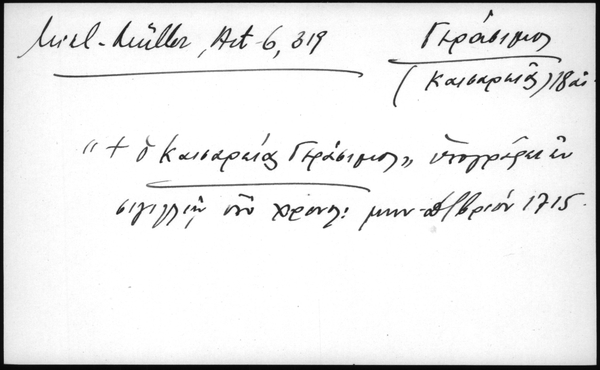 Micl-Müller, Act 6, 319
Γεράσιμος
(Καισαρείας) 18 αι.
"+ ὁ Καισαρείας Γεράσιμος„ ὑπογράφει ἐν
σιγιλλίῳ ὑπὸ χρονολ: μην-ὀβρίου 1715.